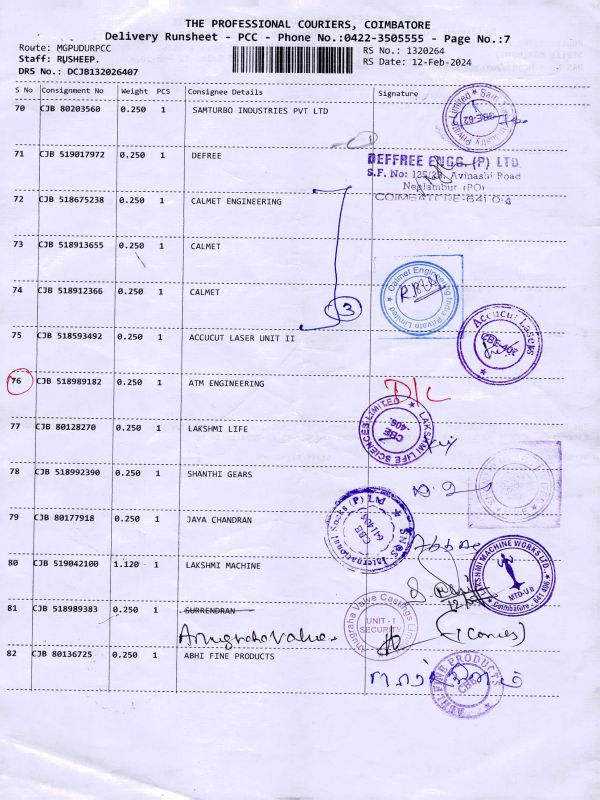 THE PROFESSIONAL COURIERS, COIMBATORE
Delivery Runsheet - PCC - Phone No.:0422-3505555 - Page No.:7
Route: MGPUDURPCC
RS No.: 1320264
Staff: RUSHEEP.
RS Date: 12-Feb-2024
DRS No.: DCJB132026407
S No Consignment No Weight PCS Consignee Details Signature
70 CJB 80203560 0.250 1 SAMTURBO INDUSTRIES PVT LTD
71 CJB 519017972 0.250 1 DEFREE
DEFFREE ENGG. (P) LTD
S.F. No: 125/2B, Avinashi Road
Neelambur (PO)
COIMBATORE-641 0
72 CJB 518675238 0.250 1 CALMET ENGINEERING
73 CJB 518913655 0.250 1 CALMET
74 CJB 518912366 0.250 1 CALMET
3
Calmet Engineering India Private Limited
75 CJB 518593492 0.250 1 ACCUCUT LASER UNIT II
Accucut Lasers
CBE-402
76 CJB 518989182 0.250 1 ATM ENGINEERING
D/C
77 CJB 80128270 0.250 1 LAKSHMI LIFE
LAKSHMI LIFE SCIENCES LIMITED
CBE
-406.
78 CJB 518992390 0.250 1 SHANTHI GEARS
79 CJB 80177918 0.250 1 JAYA CHANDRAN
SNQS International Socks (P) Ltd
CBE
641406
80 CJB 519042100 1.120 1 LAKSHMI MACHINE
LAKSHMI MACHINE WORKS LTD.
MTD-U
Coimbatore - 641
81 CJB 518989383 0.250 1 SURRENDRAN
Anugraha Valve
Anugraha Valve Castings Limited
UNIT - I
SECURITY
(1 Covers)
82 CJB 80136725 0.250 1 ABHI FINE PRODUCTS
ABHI FINE PRODUCTS
CBE